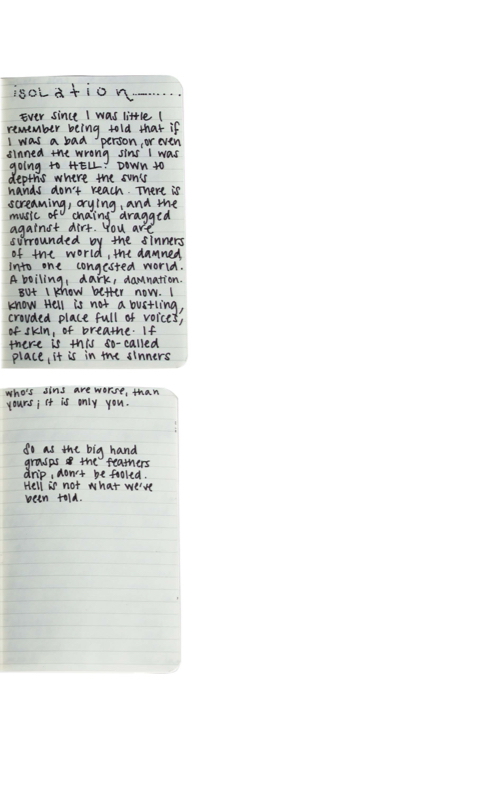 isolation...........
Ever since I was little I
remember being told that if
I was a bad person, or even
sinned the wrong sins I was
going to HELL. Down to
depths where the sun's
hands don't reach. There is
screaming, crying, and the
music of chains dragged
against dirt. You are
surrounded by the sinners
of the world, the damned
into one congested world.
A boiling, dark, damnation.
But I know better now. I
know Hell is not a bustling,
crouded place full of voices,
of skin, of breathe. If
there is this so-called
place, it is in the sinners
who's sins are worse, than
yours; it is only you.
So as the big hand
grasps & the feathers
drip, don't be fooled.
Hell is not what we've
been told.